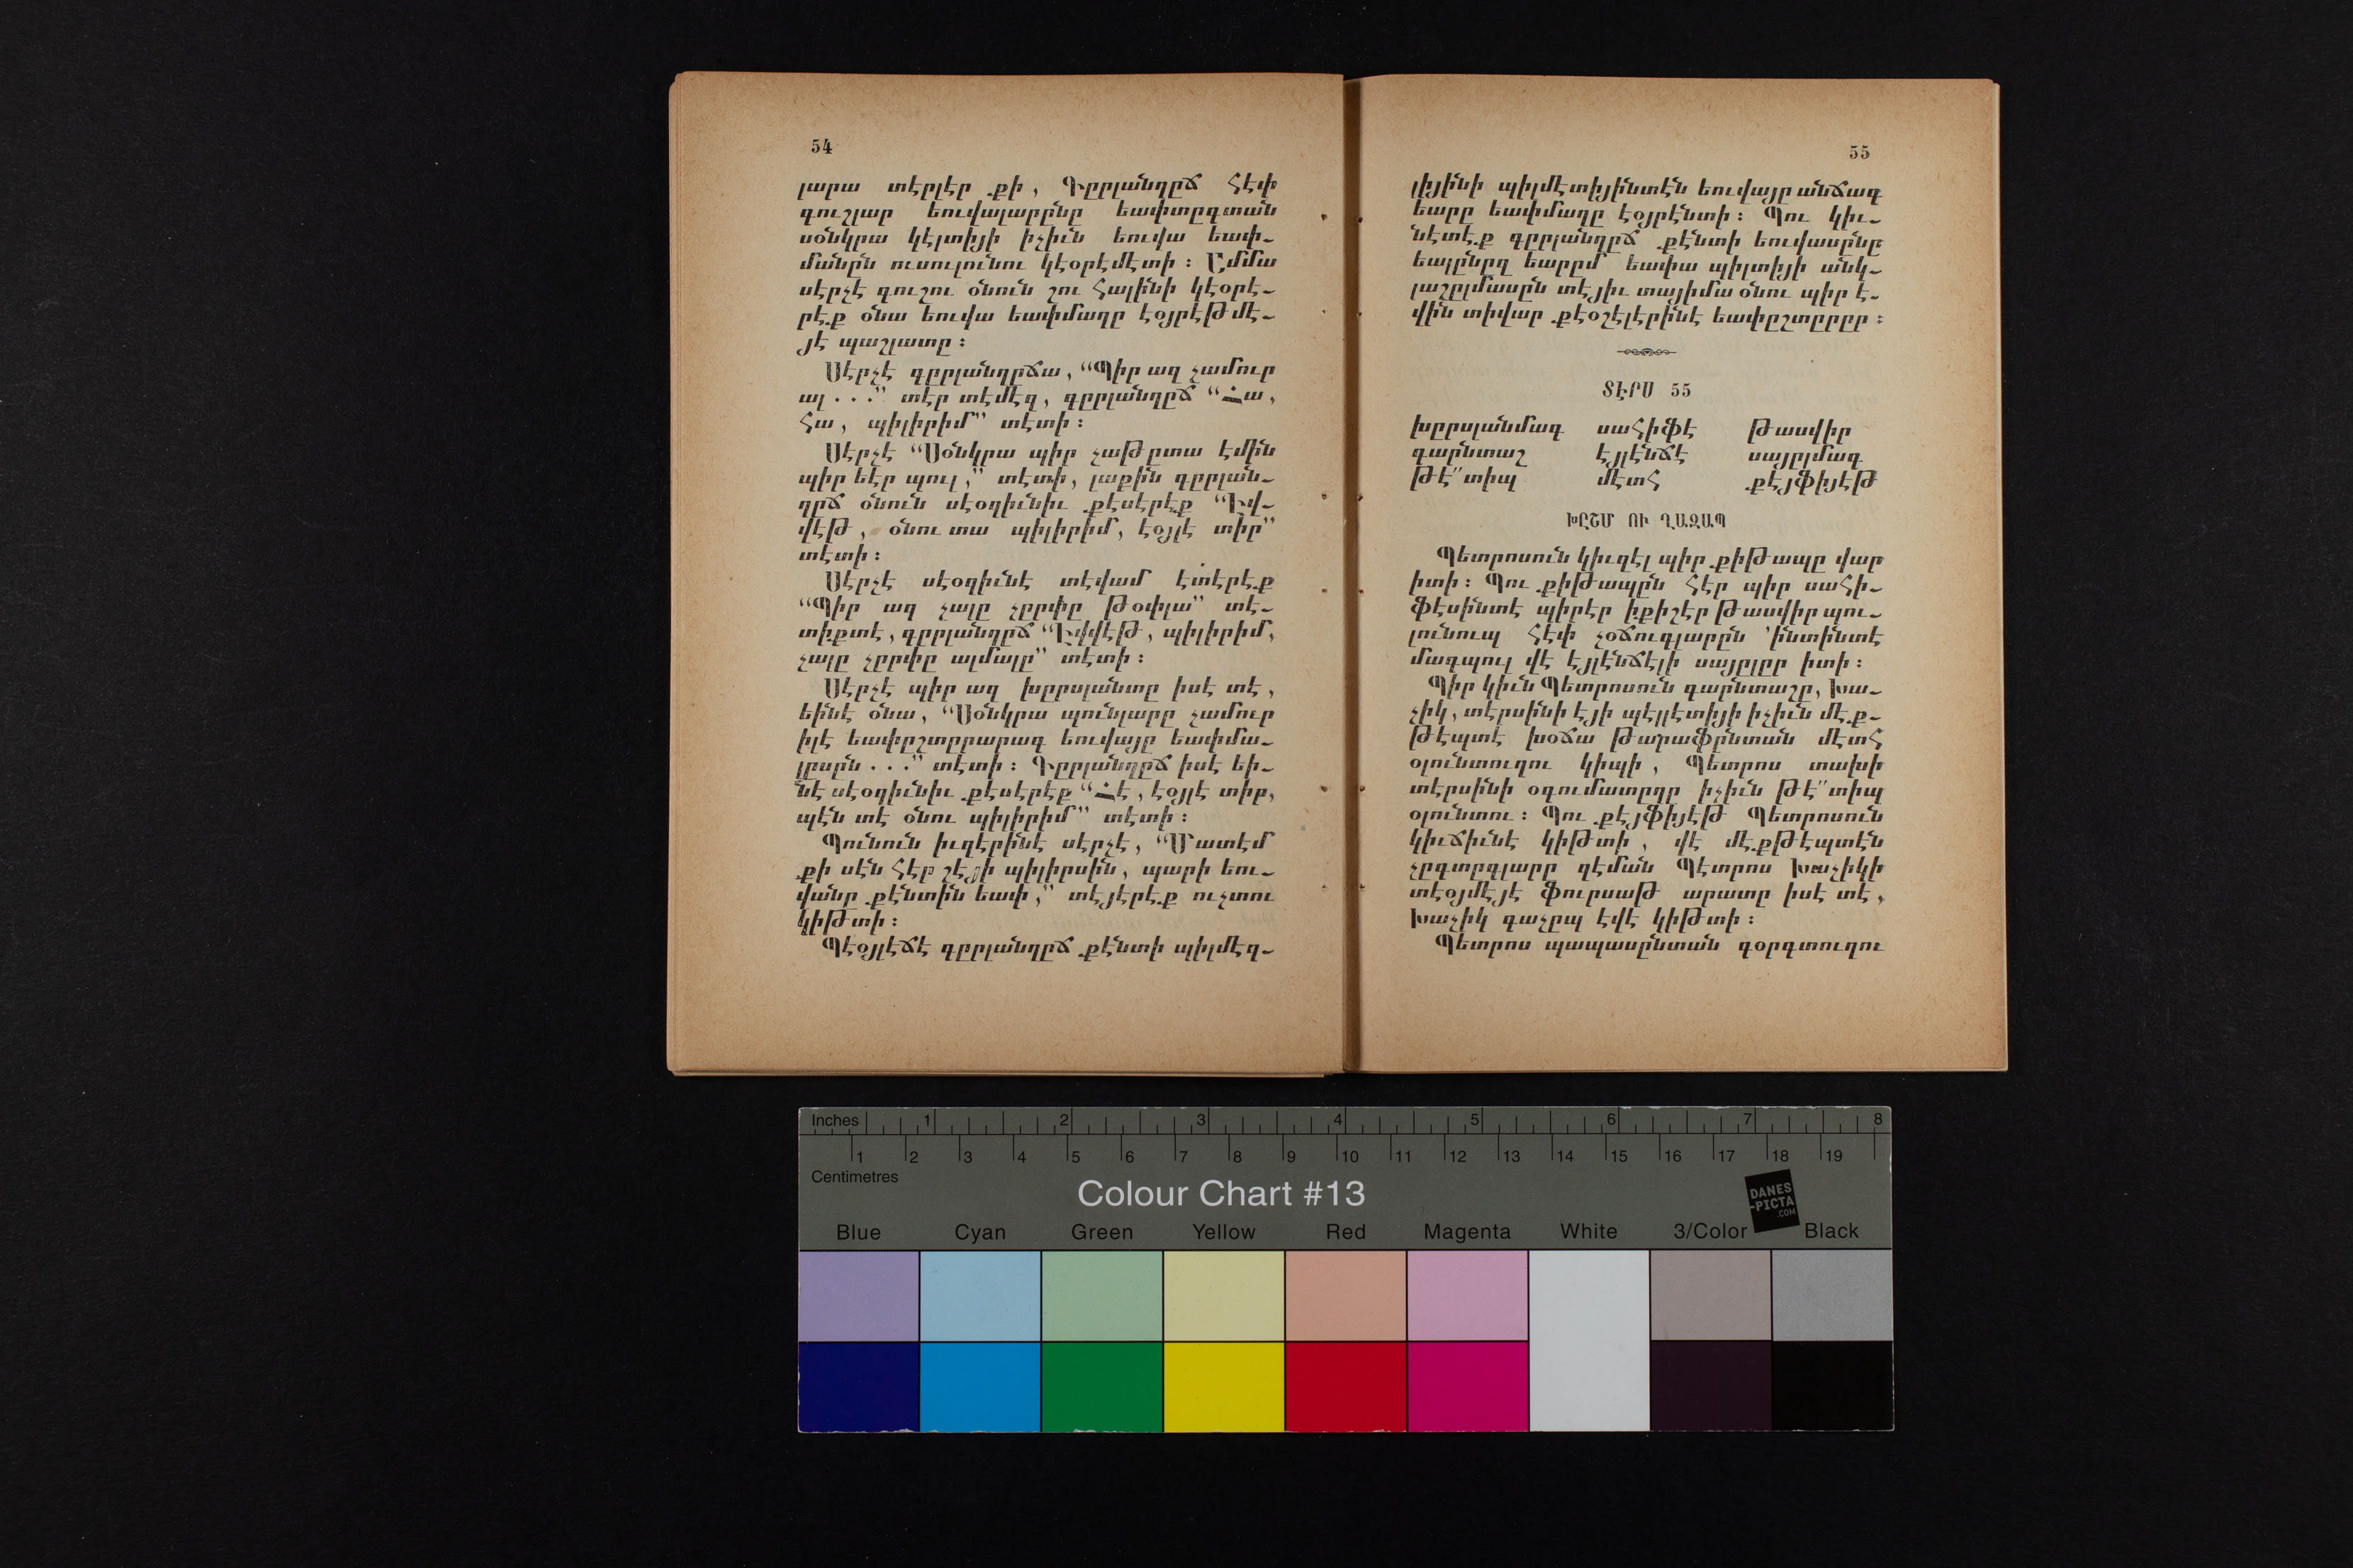 54
լարա տէրլէր քի, Գըրլանղըճ Հէփ
գուշլար եուվալարընը եափտըգտան
սօնկրա կէլտիյի իչիւն եուվա եափ-
մանըն ուսուլունու կէօրէմէտի։ Ըմմա
սէրչէ գուշու օնուն շու Հալինի կէօրէ-
րէք օնա եուվա եափմաղը էօյրէթմէ-
յէ պաշլատը։
Սէրչէ գըրլանղըճա, “Պիր ազ չամուր
ալ . . .” տէր տէմէզ, գըրլանղըճ “Հա,
Հա, պիլիրիմ” տէտի։
Սէրչէ “Սօնկրա պիր չաթըտա էմին
պիր եէր պուլ,” տէտի, լաքին գըրլան-
ղըճ օնուն սէօզիւնիւ քէսէրէք “Էվ-
վէթ, օնու տա պիլիրիմ, էօյլէ տիր”
տէտի։
Սէրչէ սէօզիւնէ տէվամ էտէրէք
“Պիր ազ չալը չըրփը թօփլա” տէ-
տիքտէ, գըրլանղըճ “Էվվէթ, պիլիրիմ,
չալը չըրփը ալմալը” տէտի։
Սէրչէ պիր ազ խըրսլանտը իսէ տէ,
եինէ օնա, “Սօնկրա պունլարը չամուր
իլէ եափըշտըրարագ եուվայը եափմա-
լըսըն . . .” տէտի։ Գըրլանղըճ իսէ եի-
նէ սէօզիւնիւ քէսէրէք “Հէ, էօյլէ տիր,
պէն տէ օնու պիլիրիմ” տէտի։
Պունուն իւզէրինէ սէրչէ, “Մատէմ
քի սէն Հէր շէյի պիլիրսին, պարի եու-
վանը քէնտին եափ,” տէյէրէք ուչտու
կիթտի։
Պէօյլէճէ գըրլանղըճ քէնտի պիլմէզ-
55
լիյինի պիլմէտիյինտէն եուվայը անճագ
եարը եափմաղը էօյրէնտի։ Պու կիւ-
նէտէք գըրլանղըճ քէնտի եուվասընը
եալընըզ եարըմ եափա պիլտիյի անկ-
լաշըլմասըն տէյիւ տայիմա օնու պիր է-
վին տիվար քէօշէլէրինէ եափըշտըրըր։
ՏԷՐՍ 55
խըրսլանմագ սաՀիֆէ թասվիր
գարնտաշ էյլէնճէ սայըլմագ
թէ՛՛տիպ մէտՀ քէյֆիյէթ
ԽԸՇՄ ՈՒ ՂԱԶԱՊ
Պետրոսուն կիւզէլ պիր քիթապը վար
իտի։ Պու քիթապըն Հէր պիր սաՀի-
ֆէսինտէ պիրէր իքիշէր թասվիր պու-
լունուպ Հէփ չօճուգլարըն ՚ինտինտէ
մագպուլ վէ էյլէնճէլի սայըլըր իտի։
Պիր կիւն Պետրոսուն գարնտաշը, Խա-
չիկ, տէրսինի էյի պէլլէտիյի իչիւն մէք-
թէպտէ խօճա թարաֆընտան մէտՀ
օլունտուղու կիպի, Պետրոս տախի
տէրսինի օգումատըղը իչիւն թէ՛՛տիպ
օլունտու։ Պու քէյֆիյէթ Պետրոսուն
կիւճիւնէ կիթտի, վէ մէքթէպտէն
չըգտըգլարը զէման Պէտրոս Խաչիկի
տէօյմէյէ ֆուրսաթ արատը իսէ տէ,
Խաչիկ գաչըպ էվէ կիթտի։
Պետրոս պապասընտան գօրգտուղու
Inches 1 2 3 4 5 6 7 8
1 2 3 4 5 6 7 8 9 10 11 12 13 14 15 16 17 18 19
Centimetres
Colour Chart #13
DANES
-PICTA
.COM
Blue Cyan Green Yellow Red Magenta White 3/Color Black